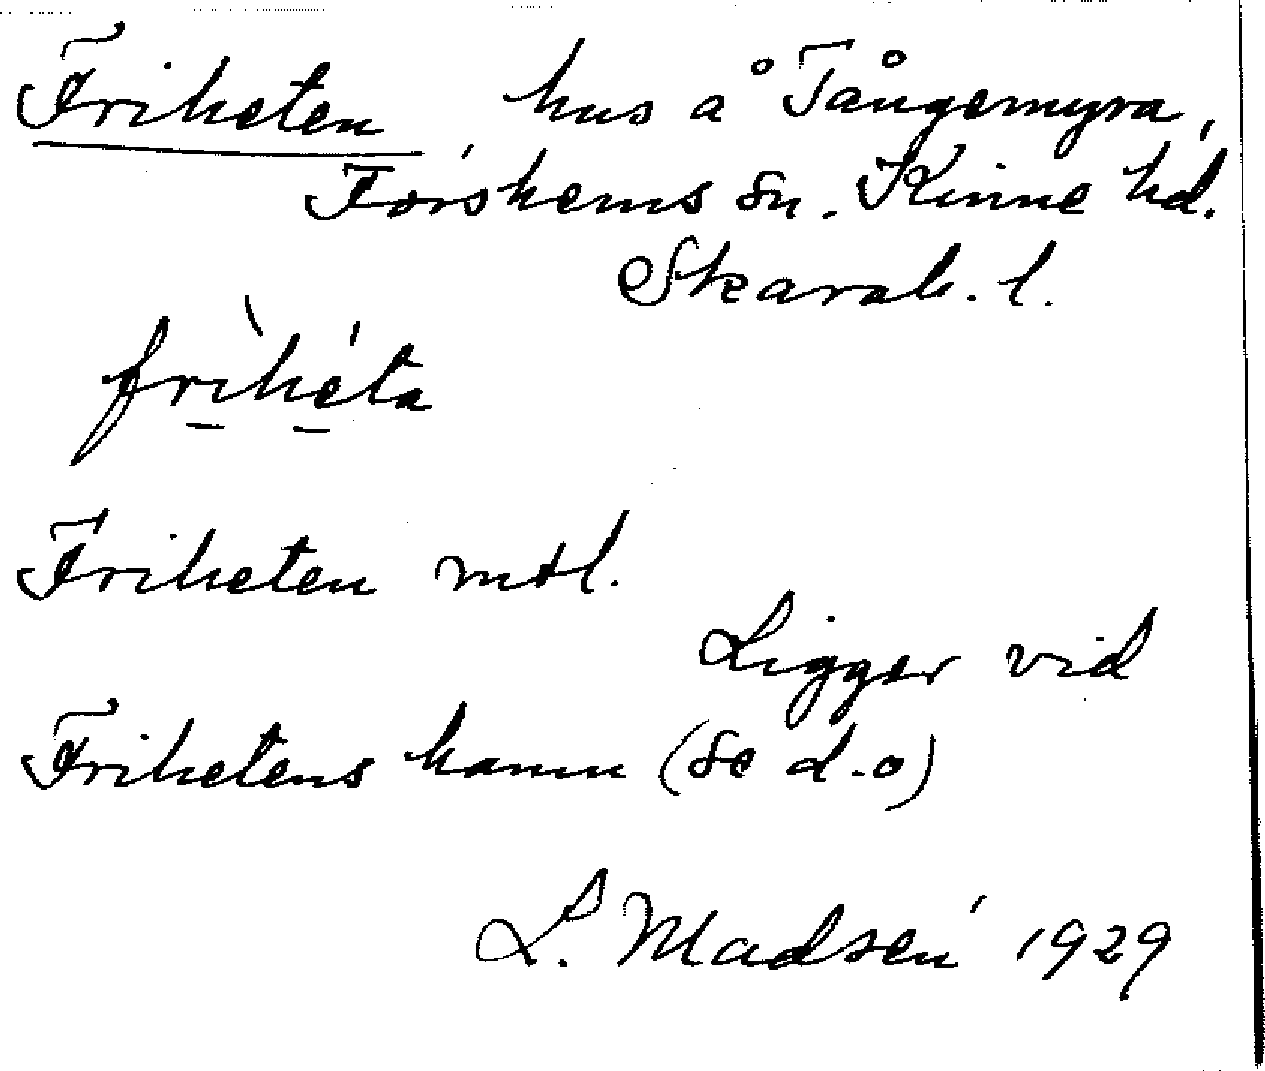 Friheten, hus å Tångemyra,
Forshems sn. Kinne hd.
Skarab. l.
frìhéta
Friheten mtl.
Ligger vid
Frihetens hamn (se d.o)
L. Madsén 1929